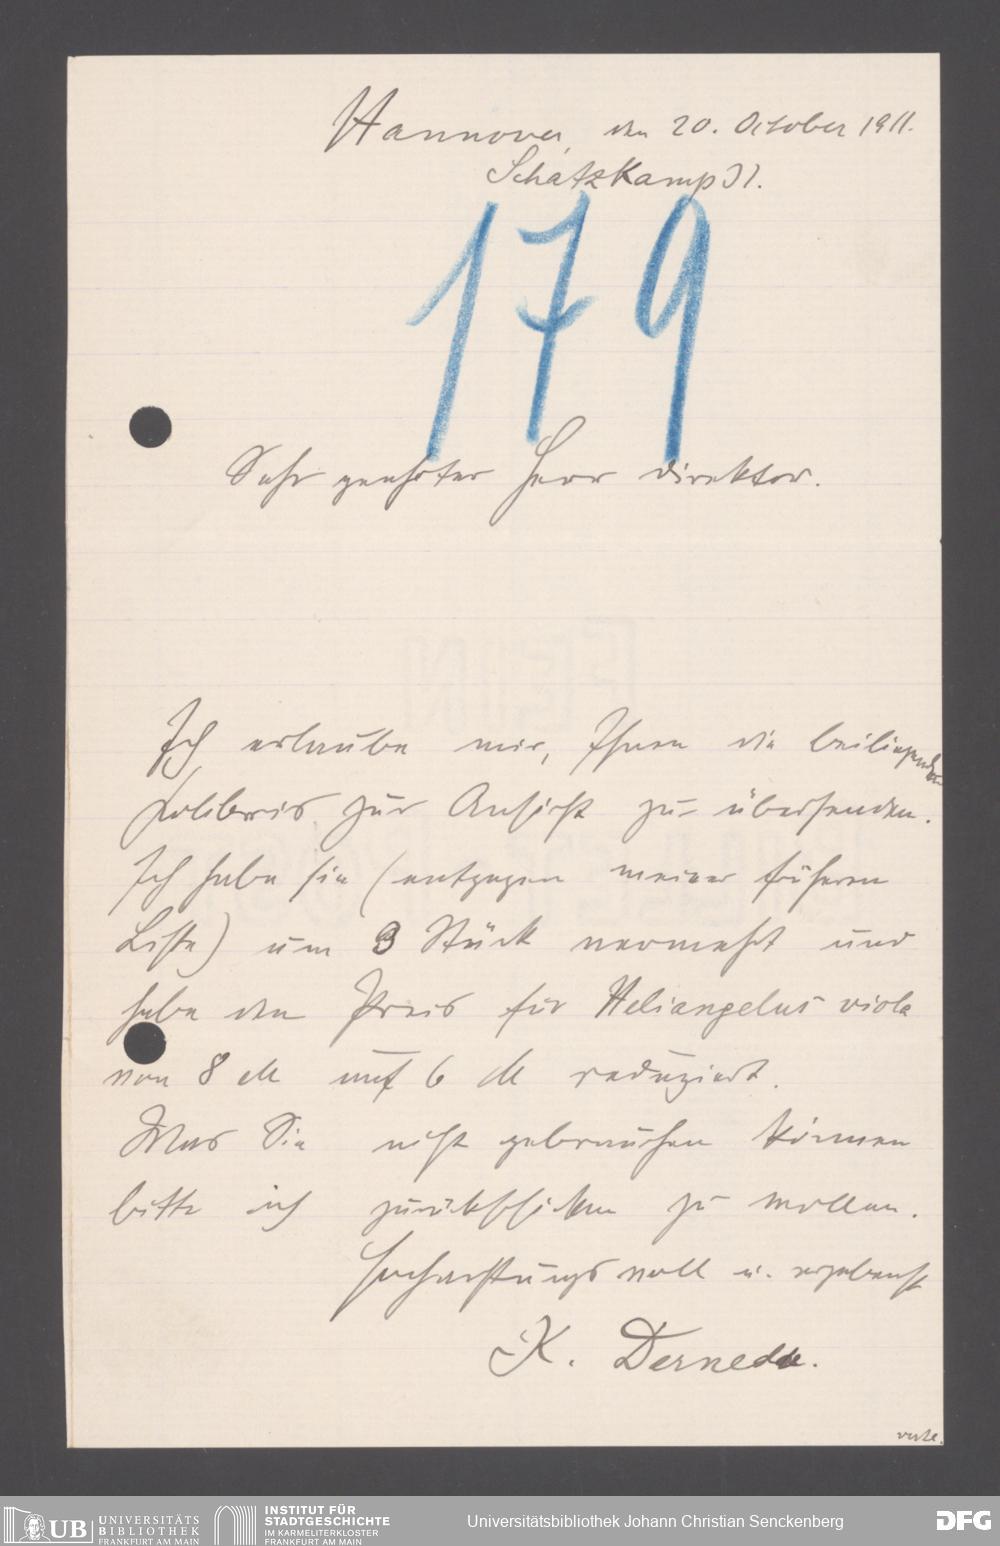 Hannover, den 20. October 1911.
Schatzkamp 31.
179
Sehr geehrter Herr Direktor.
Ich erlaube mir, Ihnen die beiliegenden
Kolibris zur Ansicht zu übersenden.
Ich habe sie (entgegen meiner früheren
Liste) um 3 Stück vermehrt und
habe den Preis für Heliangelus viola
von 8 M auf 6 M reduziert.
Was Sie nicht gebrauchen können
bitte ich zurückschicken zu wollen.
Hochachtungsvoll u. ergebenst
K. Dernedde.
verte.
UB UNIVERSITÄTS
BIBLIOTHEK
FRANKFURT AM MAIN
INSTITUT FÜR
STADTGESCHICHTE
IM KARMELITERKLOSTER
FRANKFURT AM MAIN
Universitätsbibliothek Johann Christian Senckenberg
DFG